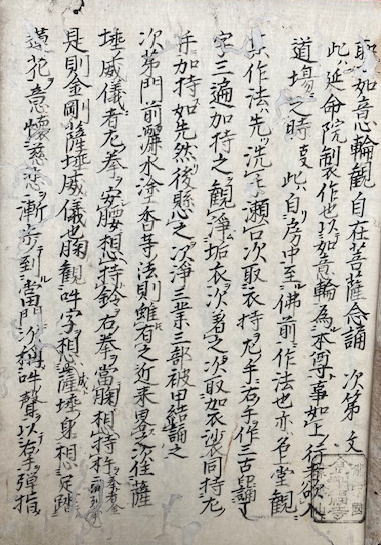 聖如意輪觀自在菩薩念誦次第文
此延命院制作也以如意輪為本尊事如上行者欲入
道場之時 此自房中至佛前作法也亦名堂觀
作法先洗手漱口次取衣持左手右手作三古印誦
字三遍加持之觀淨垢衣次著之次取如衣袈裟同持左
手加持如先然後懸之次淨三業三部被甲結誦之
次第門前灑水塗香等法則雖有之近来畧之次住薩
埵威儀者左拳安腰想持鈴右拳當胸想持杵
是則金剛薩埵威儀也胸觀吽字想薩埵身想足踏
蓮花意懷慈悲漸步到當門次稱吽聲以右手彈指